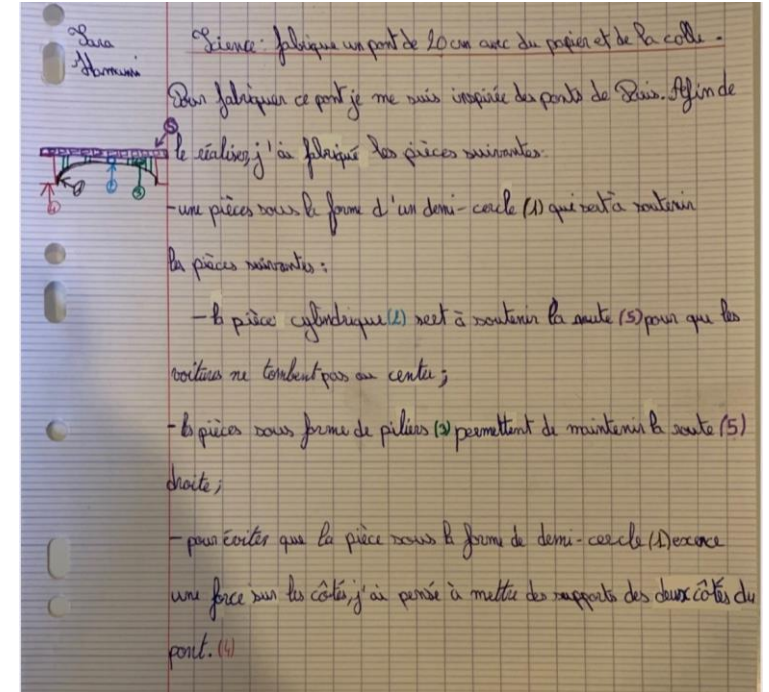 Sara
Hamumi
Science : fabrique un pont de 20 cm avec du papier et de la colle.
Pour fabriquer ce pont je me suis inspirée des ponts de Paris. Afin de
le réaliser, j'ai fabriqué les pièces suivantes
- une pièces sous la forme d'un demi-cercle (1) qui sert à soutenir
la pièces suivantes :
- la pièce cylindrique (2) sert à soutenir la route (5) pour que les
voitures ne tombent pas au centre ;
- les pièces sous forme de piliers (3) permettent de maintenir la route (5)
droite ;
- pour éviter que la pièce sous la forme de demi-cercle (1) exerce
une force sur les côtés, j'ai pensé à mettre des supports des deux côtés du
pont. (4)
5
4
1
2
3